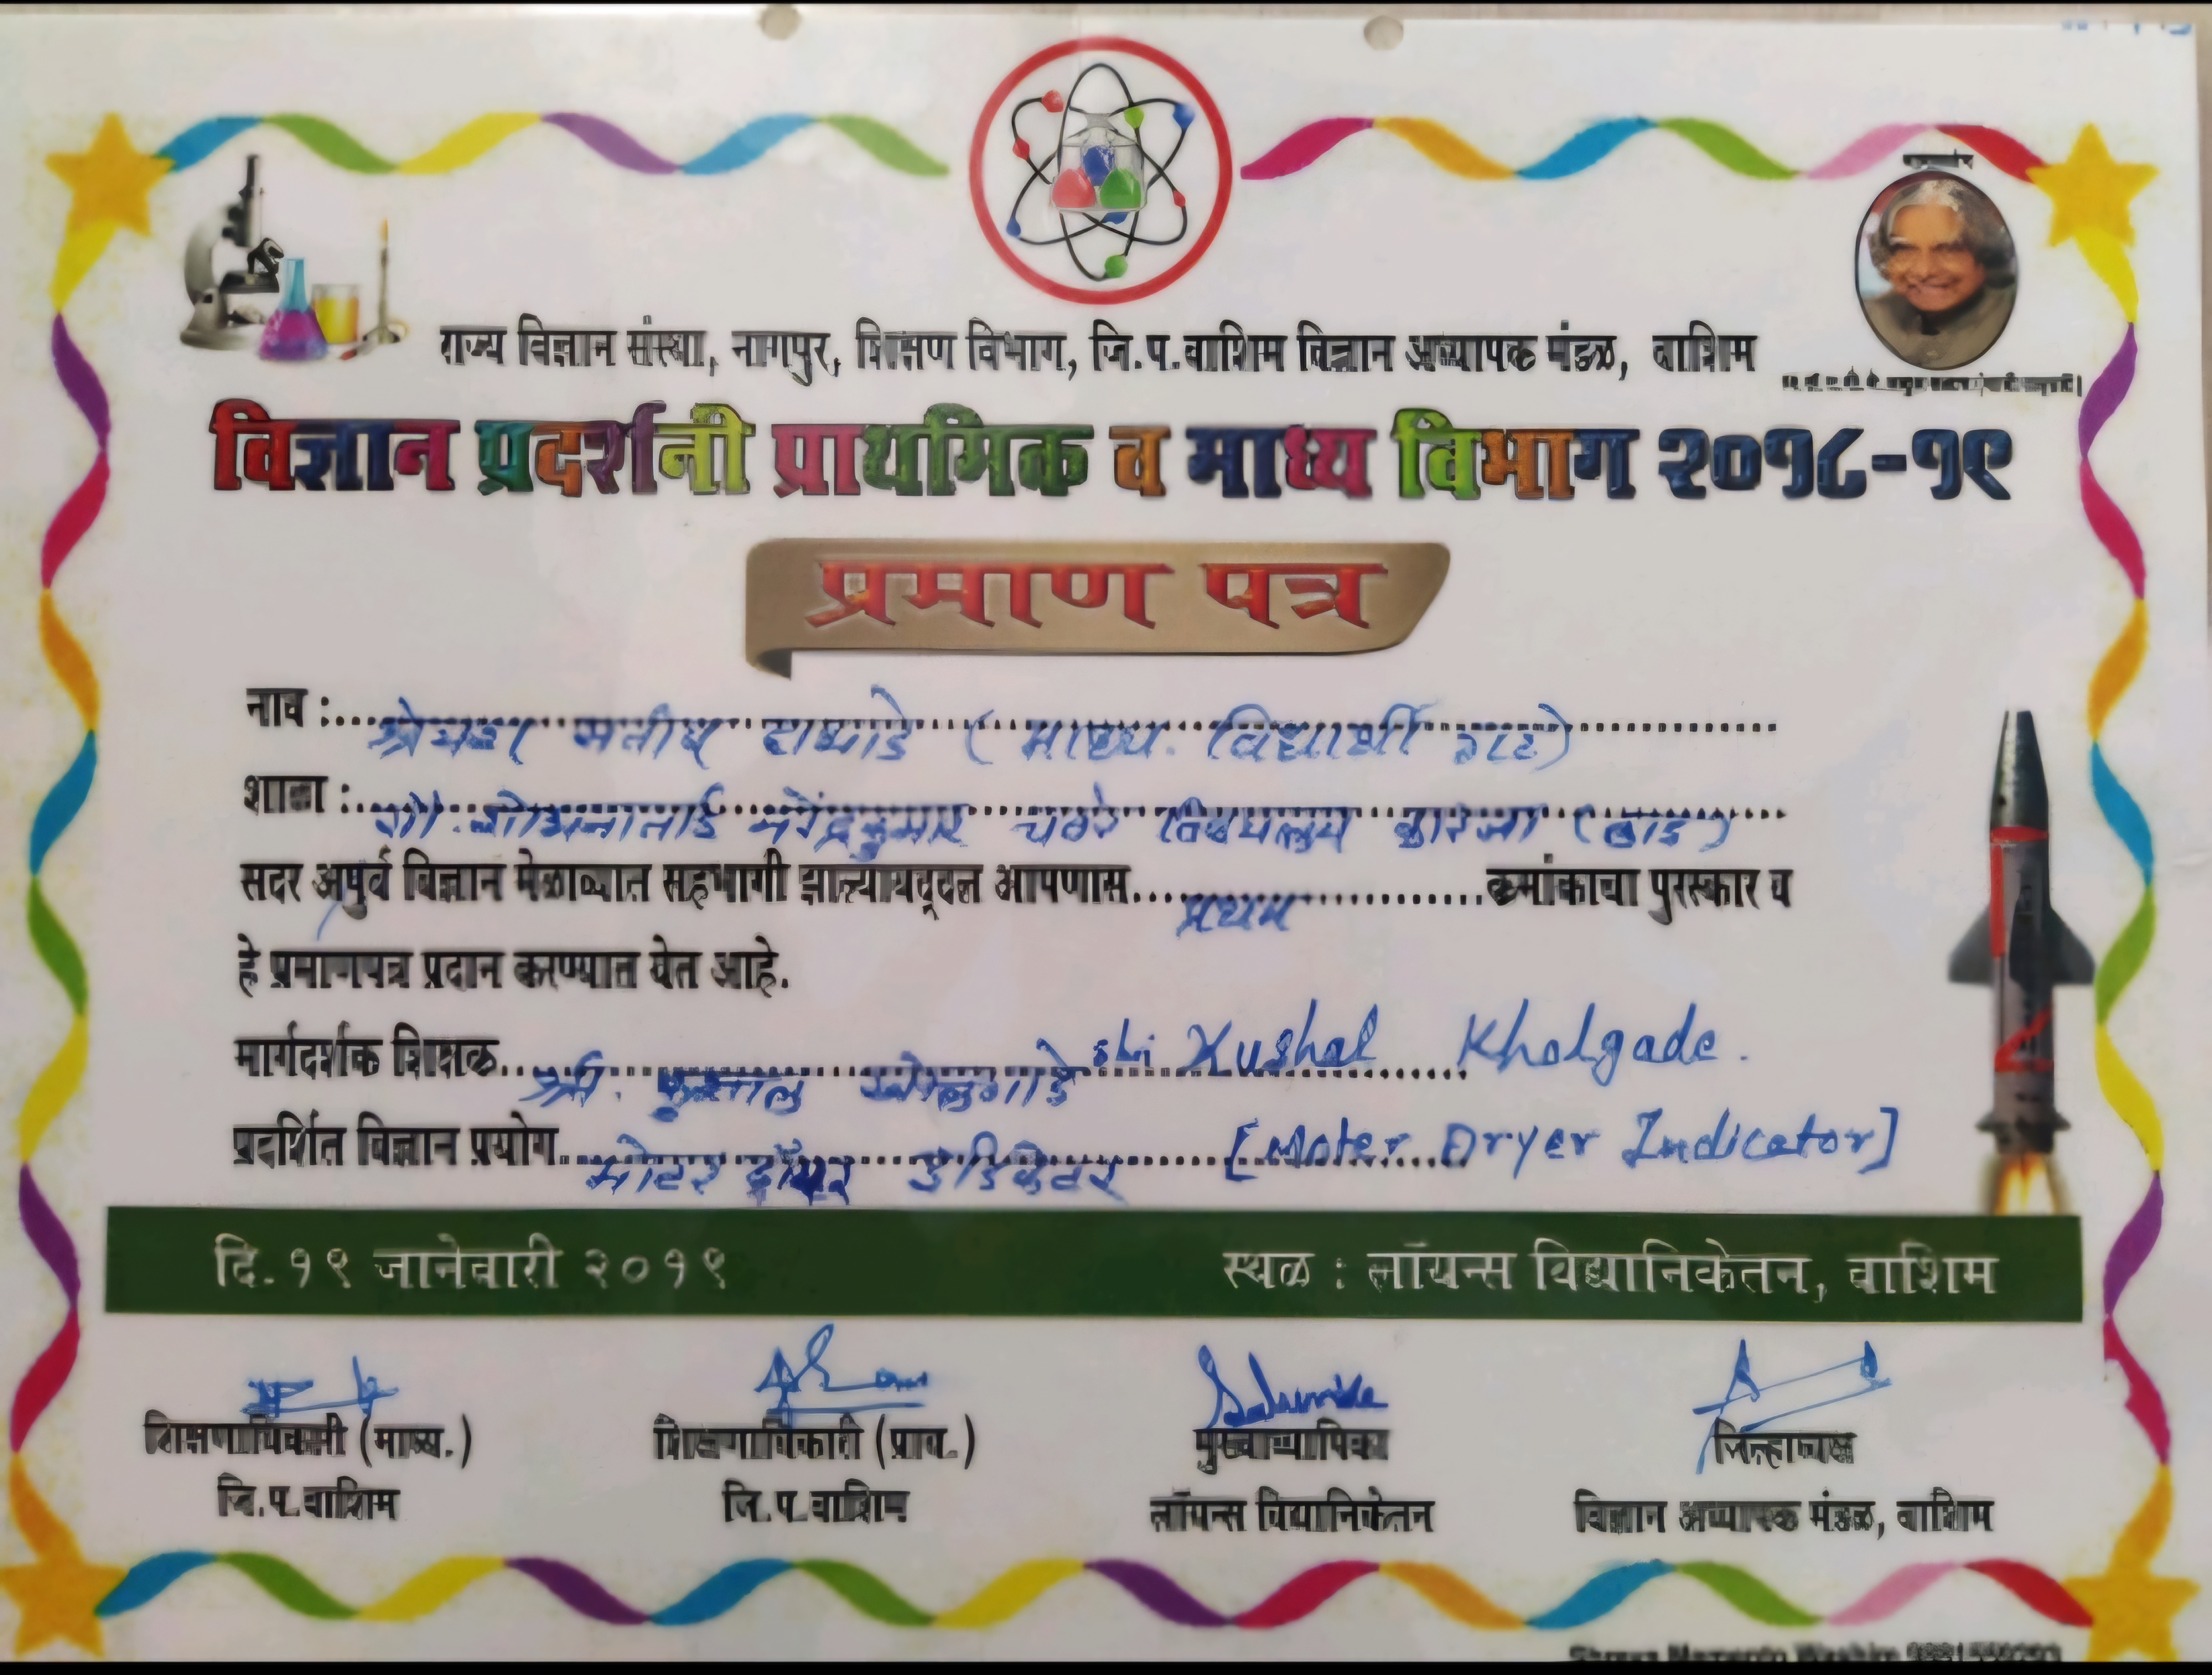 राज्य विज्ञान संस्था, नागपुर, शिक्षण विभाग, जि.प.वाशिम विज्ञान अध्यापक मंडळ, वाशिम
विज्ञान प्रदर्शनी प्राथमिक व माध्य विभाग २०१८-१९
प्रमाण पत्र
नाव : श्रेयश सतीष (माध्य. विद्यार्थी गट)
शाळा : सौ. शोभनाताई नरेंद्रकुमार चवरे विद्यालय कारंजा (लाड)
सदर अपुर्व विज्ञान मेळाव्यात सहभागी झाल्याबद्दल आपणास प्रथम क्रमांकाचा पुरस्कार व
हे प्रमाणपत्र प्रदान करण्यात येत आहे.
मार्गदर्शक शिक्षक श्री. कुशाल खोलगाडे shi Kushal Kholgade.
प्रदर्शित विज्ञान प्रयोग मोटर ड्रॉयर इंडिकेटर [Moter Dryer Indicator]
दि.१९ जानेवारी २०१९ स्थळ : लॉयन्स विद्यानिकेतन, वाशिम
शिक्षणाधिकारी (माध्य.) शिक्षणाधिकारी (प्राथ.) मुख्याध्यापिका जिल्हाध्यक्ष
जि.प.वाशिम जि.प.वाशिम लॉयन्स विद्यानिकेतन विज्ञान अध्यापक मंडळ, वाशिम